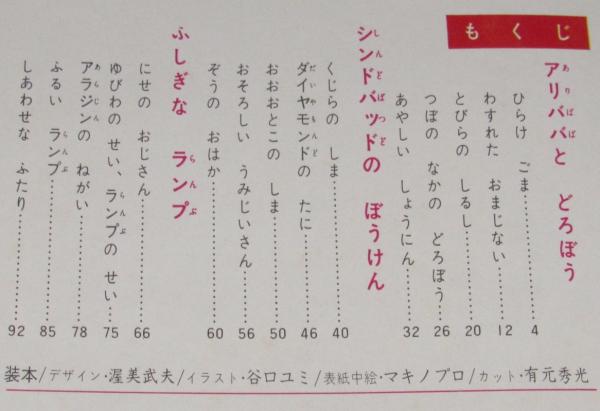 もくじ
アリババと どろぼう
ありばば
ひらけ ごま……………4
わすれた おまじない……………12
とびらの しるし……………20
つぼの なかの どろぼう……………26
あやしい しょうにん……………32
シンドバッドの ぼうけん
しんどばっど
くじらの しま……………40
ダイヤモンドの たに……………46
だいやもんど
おおおとこの しま……………50
おそろしい うみじいさん……………56
ぞうの おはか……………60
ふしぎな ランプ
らんぷ
にせの おじさん……………66
ゆびわの せい、ランプの せい……………75
らんぷ
アラジンの ねがい……………78
あらじん
ふるい ランプ……………85
らんぷ
しあわせな ふたり……………92
装本/デザイン・渥美武夫/イラスト・谷口ユミ/表紙中絵・マキノプロ/カット・有元秀光